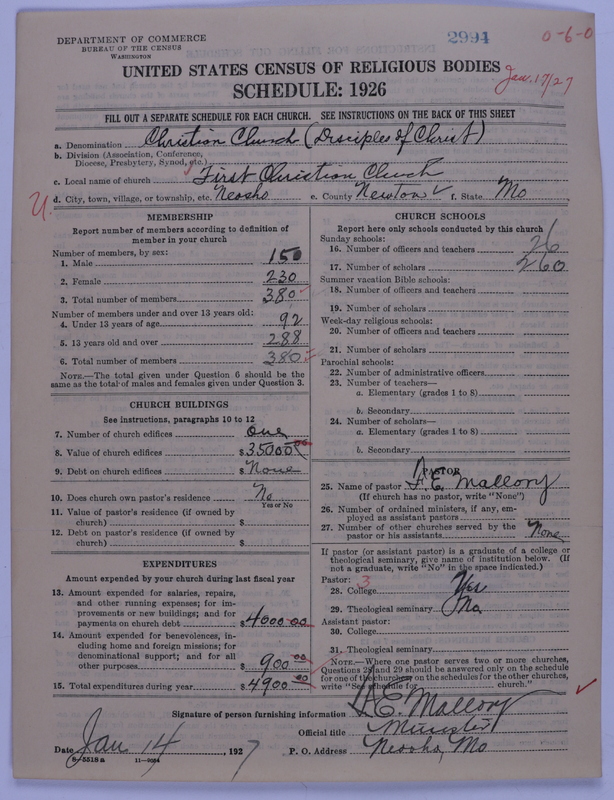 DEPARTMENT OF COMMERCE
BUREAU OF THE CENSUS
WASHINGTON
2994
0-6-0
UNITED STATES CENSUS OF RELIGIOUS BODIES
Jan. 17/27
SCHEDULE: 1926
FILL OUT A SEPARATE SCHEDULE FOR EACH CHURCH. SEE INSTRUCTIONS ON THE BACK OF THIS SHEET
a. Denomination Christian Church (Disciples of Christ)
b. Division (Association, Conference,
Diocese, Presbytery, Synod, etc.)
c. Local name of church First Christian Church
d. City, town, village, or township, etc. Neosho e. County Newton f. State Mo
MEMBERSHIP
Report number of members according to definition of
member in your church
Number of members, by sex:
1. Male 150
2. Female 230
3. Total number of members 380
Number of members under and over 13 years old:
4. Under 13 years of age 92
5. 13 years old and over 288
6. Total number of members 380
NOTE.—The total given under Question 6 should be
the same as the total of males and females given under Question 3.
CHURCH BUILDINGS
See instructions, paragraphs 10 to 12
7. Number of church edifices one
8. Value of church edifices $35000 00
9. Debt on church edifices $None
10. Does church own pastor's residence No
Yes or No
11. Value of pastor's residence (if owned by
church) $
12. Debt on pastor's residence (if owned by
church) $
EXPENDITURES
Amount expended by your church during last fiscal year
13. Amount expended for salaries, repairs,
and other running expenses; for im-
provements or new buildings; and for
payments on church debt $4000 00
14. Amount expended for benevolences, in-
cluding home and foreign missions; for
denominational support; and for all
other purposes $900 00
15. Total expenditures during year $4900 00
CHURCH SCHOOLS
Report here only schools conducted by this church
Sunday schools:
16. Number of officers and teachers 26
17. Number of scholars 260
Summer vacation Bible schools:
18. Number of officers and teachers
19. Number of scholars
Week-day religious schools:
20. Number of officers and teachers
21. Number of scholars
Parochial schools:
22. Number of administrative officers
23. Number of teachers—
a. Elementary (grades 1 to 8)
b. Secondary
24. Number of scholars—
a. Elementary (grades 1 to 8)
b. Secondary
PASTOR
25. Name of pastor E. Mallory
(If church has no pastor, write "None")
26. Number of ordained ministers, if any, em-
ployed as assistant pastors
27. Number of other churches served by the
pastor or his assistants None
If pastor (or assistant pastor) is a graduate of a college or
theological seminary, give name of institution below. (If
not a graduate, write "No" in the space indicated.)
Pastor: 3
28. College Yes
29. Theological seminary No
Assistant pastor:
30. College
31. Theological seminary
NOTE.—Where one pastor serves two or more churches,
Questions 28 and 29 should be answered only on the schedule
for one of the churches; on the schedules for the other churches,
write "See schedule for church."
Signature of person furnishing information E. Mallory
Official title Minister
Date Jan 14, 1927 P. O. Address Neosho, Mo
8-5518 a 11-9064